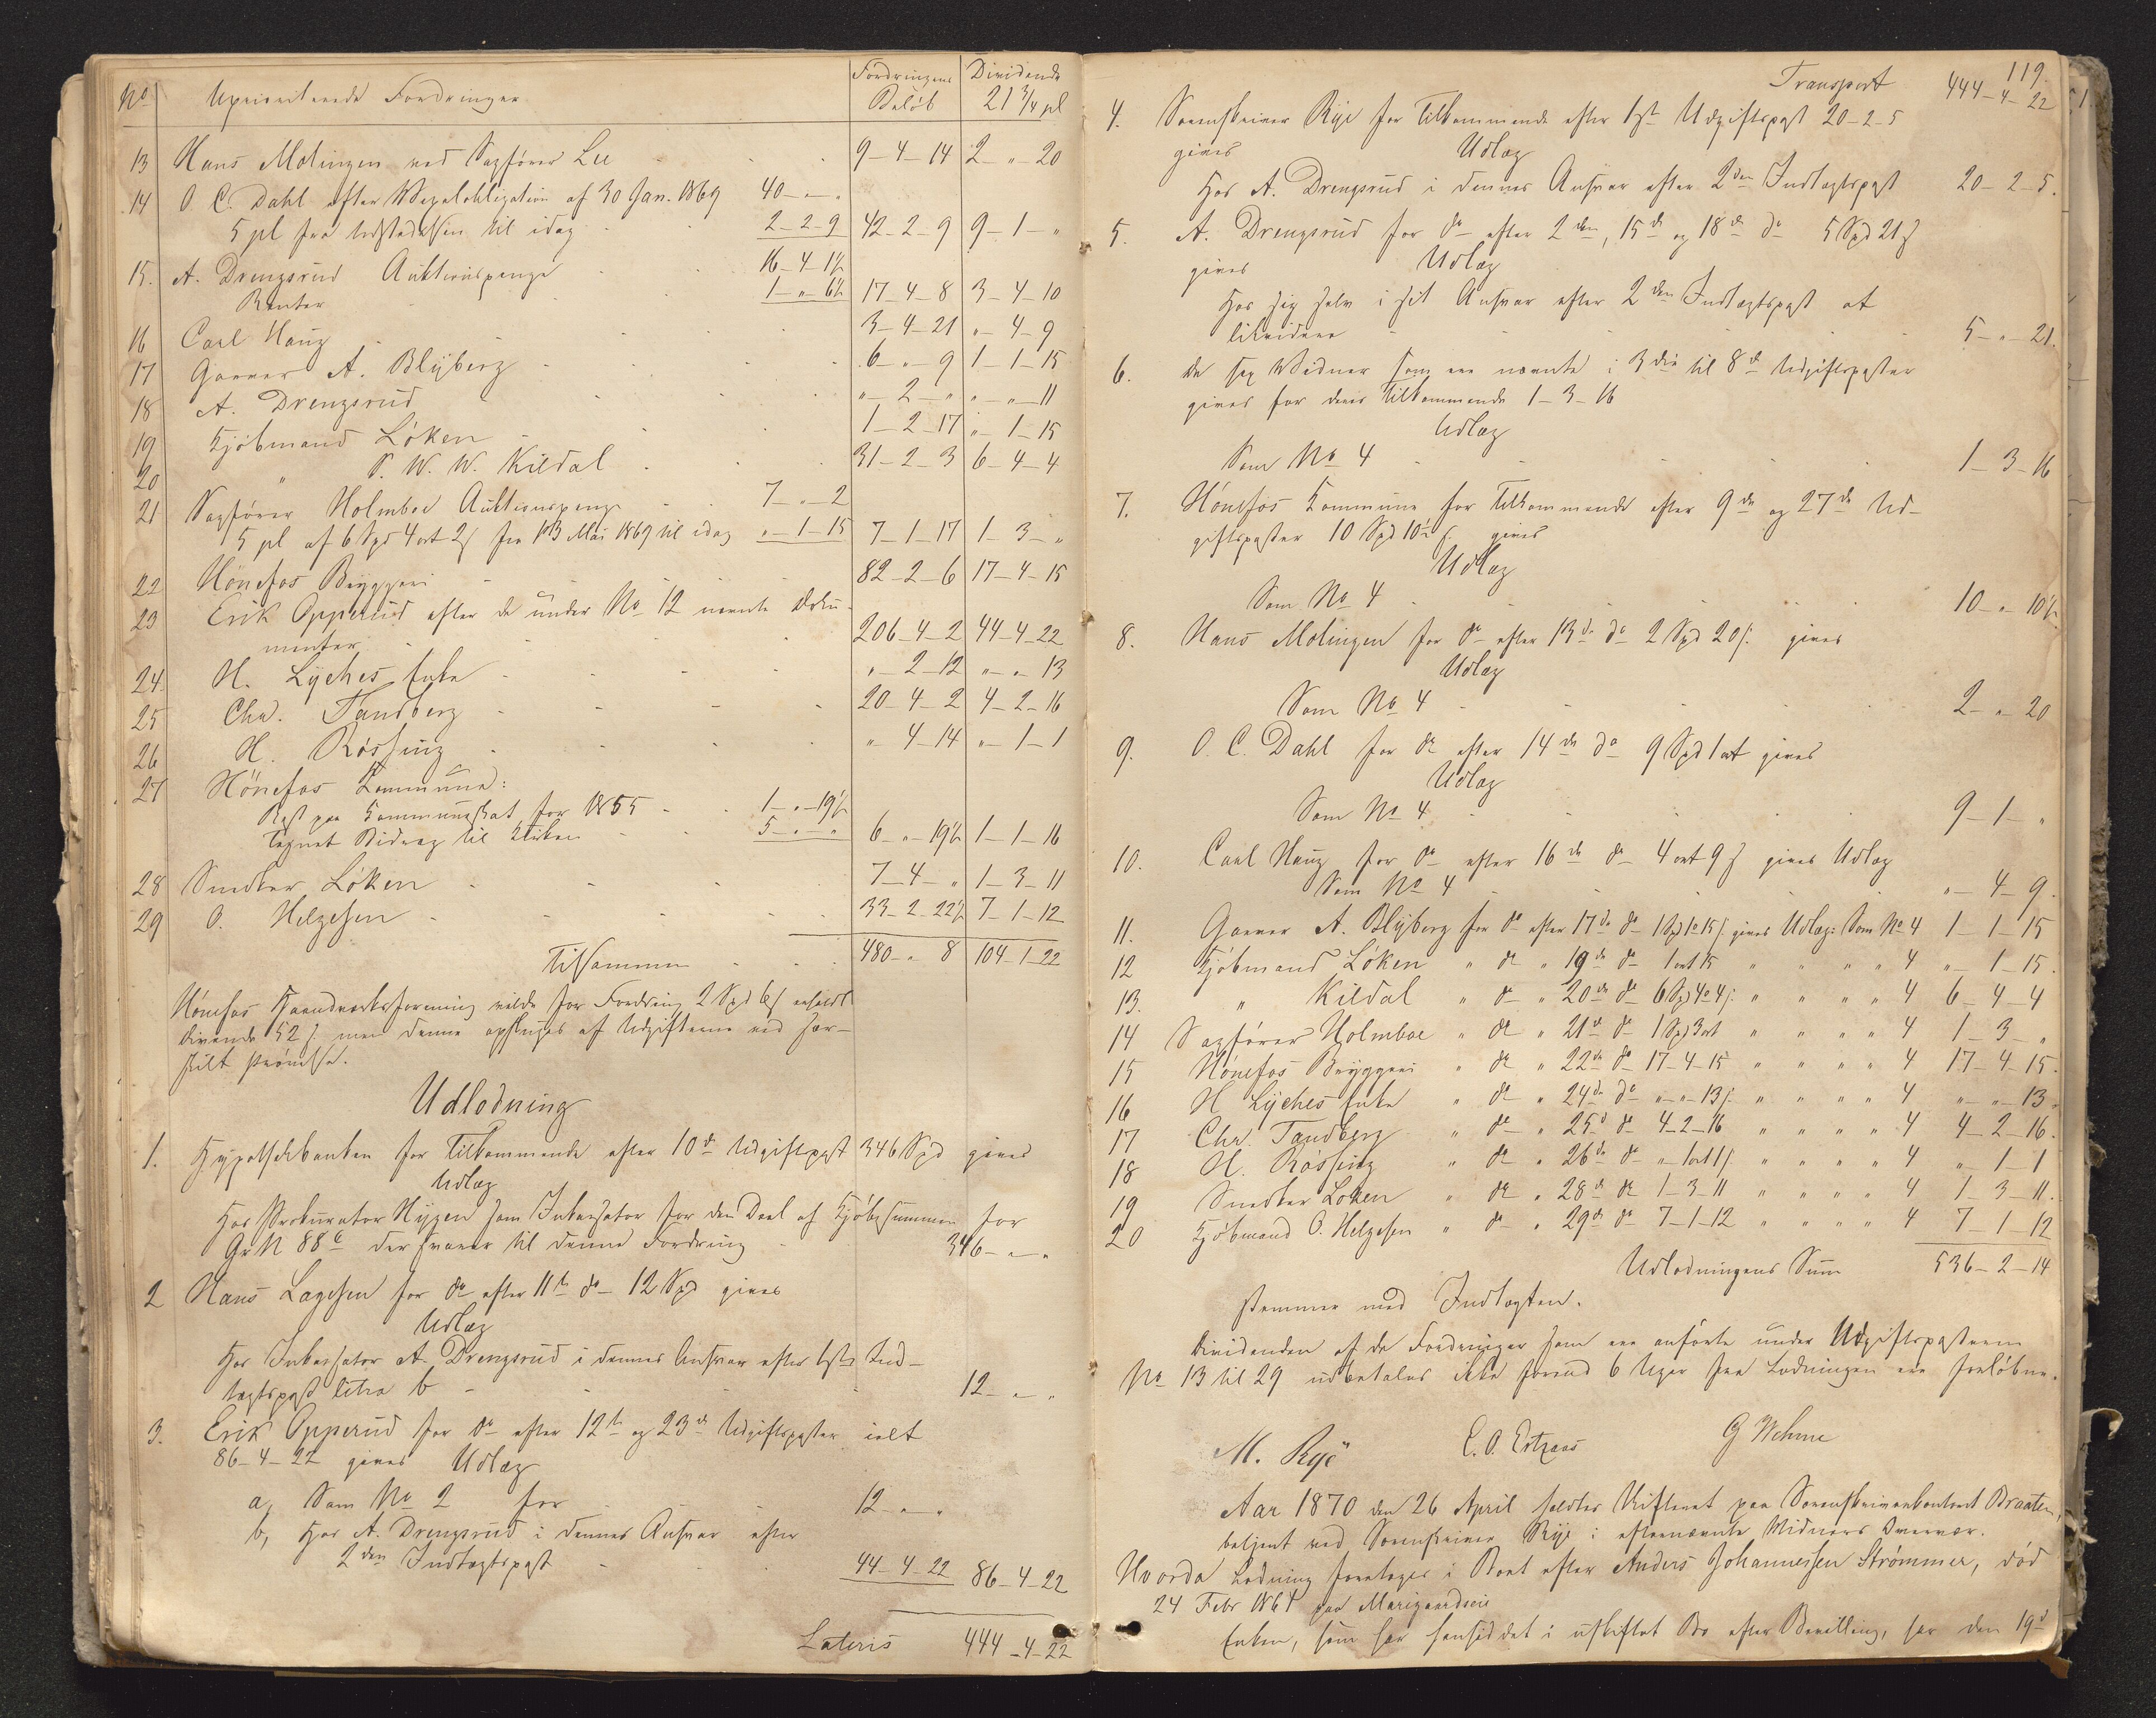 No Uprioriterede Fordringer Fordringens Beløb Dividende 21 3/4 pl
13 Hans Molingen ved Sagfører Lee 9-4-14 2-"-20
14 O. C. Dahl efter Vexelobligation af 30 Jan. 1869 40-"-"
5 pl fra Udstedelsen til idag 2-2-9 42-2-9 9-1-"
15. A. Drengsrud Auktionspenge 16-4-1½
Renter 1-"-6½ 17-4-8 3-4-10
16 Carl Haug 3-4-21 "-4-9
17 Garver A. Blyberg 6-"-9 1-1-15
18 A. Drengsrud "-2-" "-"-11
19 Kjøbmand Løken 1-2-17 "-1-15
20 " P. W. W. Kildal 31-2-3 6-4-4
21 Sagfører Holmboe Auktionspenge 7-"-2
5 pl af 6 Spd 4 ort 2 s fra 13 Mai 1869 til idag "-1-15 7-1-17 1-3-"
22 Hönefos Bryggeri 82-2-6 17-4-15
23 Erik Opperud efter de under No 12 nævnte Doku-
menter 206-4-2 44-4-22
24 H. Lyches Enke "-2-12 "-"-13
25 Chr. Tandberg 20-4-2 4-2-16
26 H. Røssing "-4-14 "-1-1
27 Hönefos Kommune:
Rest paa Kommuneskat for 1855 1-"-19½
Tegnet Bidrag til Kirken 5-"-" 6-"-19½ 1-1-16
28 Snedker Løken 7-4-" 1-3-11
29 O. Helgesen 33-2-22½ 7-1-12
Tilsammen 480-"-8 104-1-22
Hönefos Haandverksforening vilde for Fordring 2 Spd 6 s erholdt
Divende 52 s. men denne opsluges af Udgifterne ved sær-
skilt Prövelse.
Udlodning
1. Hypothekbanken for Tilkommende efter 10de Udgiftspost 346 Spd gives
Udlæg
Hos Prokurator Hygen som Inkassator for den Deel af Kjøbesummen for
Gr N 88 c der svarer til denne Fordring 346-"-"
2 Hans Lagesen for do efter 11te do 12 Spd gives
Udlæg
Hos Inkassator A. Drengsrud i dennes Ansvar efter 1ste Ind-
tægtspost litra b 12-"-"
3. Erik Opperud for do efter 12te og 23de Udgiftsposter ialt
86-4-22 gives Udlæg
a, Som No 2 for 12-"-"
b, Hos A. Drengsrud i dennes Ansvar efter
2den Indtægtspost 44-4-22 86-4-22
Lateris 444-4-22
119.
Transport 444-4-22
4. Sorenskriver Rye for Tilkommende efter 1ste Udgiftspost 20-2-5
gives Udlæg
Hos A. Drengsrud i dennes Ansvar efter 2den Indtægtspost 20-2-5.
5. A. Drengsrud for do efter 2den, 15de og 18de do 5 Spd 21 s
gives Udlæg
Hos sig selv i sit Ansvar efter 2den Indtægtspost at
likvidere 5-"-21.
6. De sex Vidner som ere nævnte i 3die til 8de Udgiftsposter
gives for deres Tilkommende 1-3-16
Udlæg
Som No 4 1-3-16
7. Hönefos Kommune for Tilkommende efter 9de og 27de Ud-
giftsposter 10 Spd 10½ s. gives
Udlæg
Som No 4 10-"-10½
8. Hans Molingen for do efter 13de do 2 Spd 20 s. gives
Udlæg
Som No 4 2-"-20
9. O. C. Dahl for do efter 14de do 9 Spd 1 ort gives
Udlæg
Som No 4 9-1-"
10. Carl Haug for do efter 16de do 4 ort 9 s gives Udlæg
Som No 4 "-4-9.
11. Garver A. Blyberg for do efter 17de do 1 Spd 1o 15 s. gives Udlæg: Som No 4 1-1-15
12 Kjøbmand Løken " do " 19de do 1 ort 15 " " " " 4 "-1-15.
13. " Kildal " do " 20de do 6 Spd 4o 4 s. " " " " 4 6-4-4
14 Sagfører Holmboe " do " 21de do 1 Spd 3 ort " " " " 4 1-3-"
15 Hönefos Bryggeri " do " 22de do 17-4-15 " " " " 4 17-4-15.
16 H Lyches Enke " do " 24de do "-"-13 s. " " " " 4 "-"-13.
17 Chr. Tandberg " do " 25de do 4-2-16 " " " " 4 4-2-16.
18 H. Røssing " do " 26de do "-1 ort 1 s. " " " " 4 "-1-1
19 Snedker Løken " do " 28de do 1-3-11 " " " " 4 1-3-11.
20 Kjøbmand O. Helgesen " do " 29de do 7-1-12 " " " " 4 7-1-12
Udlodningens Sum 536-2-14
stemmer med Indtægten.
Dividenden af de Fordringer som ere anførte under Udgiftsposterne
No 13 til 29 udbetales ikke forend 6 Uger fra Lodningen ere forløbne.
M. Rye G Wehme
Aar 1870 den 26 April holdtes Skifteret paa Sorenskriverkontoret Braaten,
betjent ved Sorenskriver Rye i efternævnte Vidners Overvær.
Hvorda Lodning foretoges i Boet efter Anders Johannessen Strömmer, död
24 Febr 1861 paa Marigaardseie
Enken, som har hensiddet i uskiftet Bo efter Bevilling, har den 19de